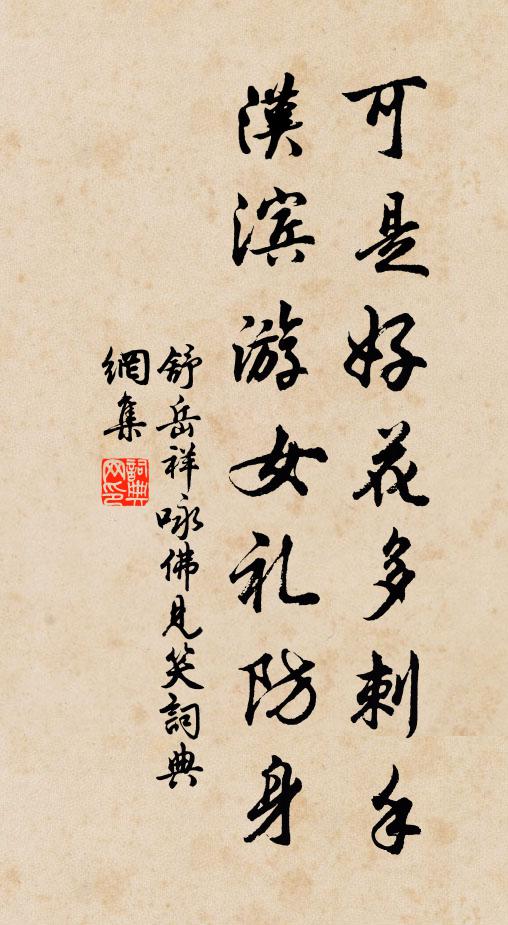 可是好花多刺手
漢滨游女礼防身
舒岳祥咏佛見笑詞典
網集
詞典网印